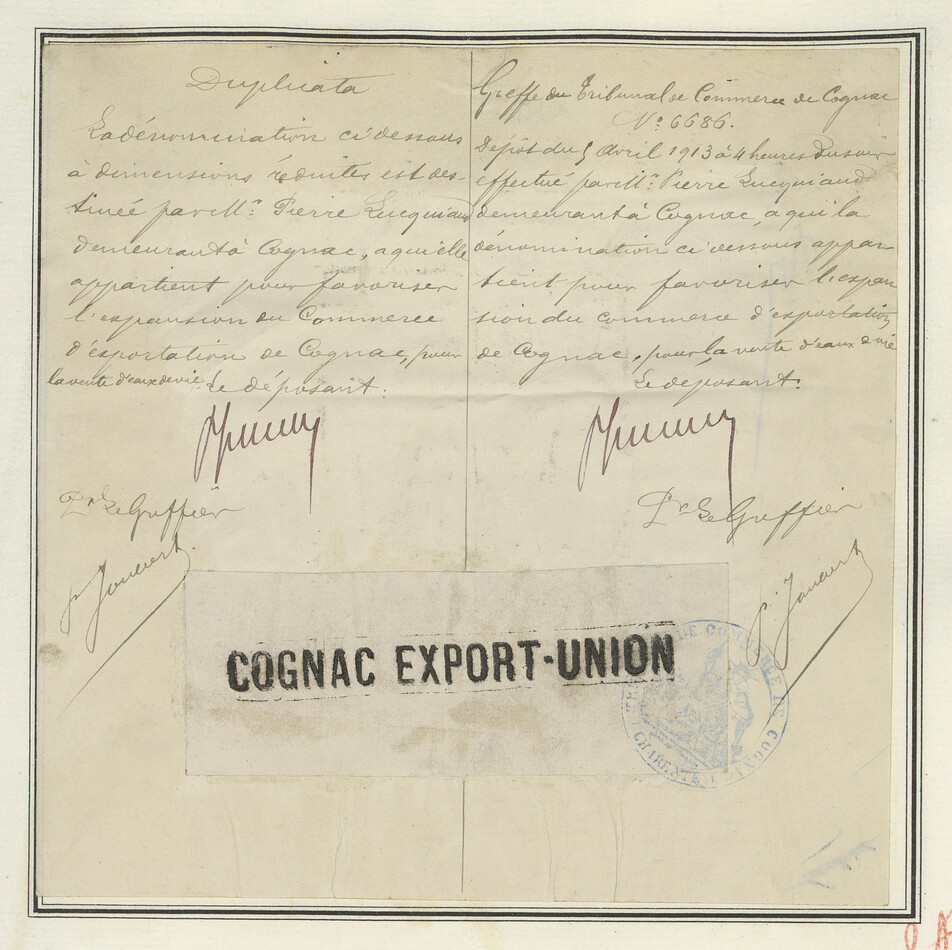 Duplicata
La dénomination ci dessous
à dimensions réduites est des-
tinée par Mr. Pierre Lucquiaud
demeurant à Cognac, à qui elle
appartient pour favoriser
l'expansion du Commerce
d'exportation de Cognac, pour
la vente d'eaux de vie. Le déposant.
Pr Le Greffier
Greffe du Tribunal de Commerce de Cognac
No. 6686.
Dépôt du 5 Avril 1913 à 4 heures du soir
effectué par Mr. Pierre Lucquiaud
demeurant à Cognac, à qui la
dénomination ci dessous appar-
tient pour favoriser l'expan
sion du commerce d'exportation
de Cognac, pour la vente d'eaux de vie
Le déposant.
Pr Le Greffier
COGNAC EXPORT-UNION
DE COMMERCE DE COGNAC
(CHARENTE)